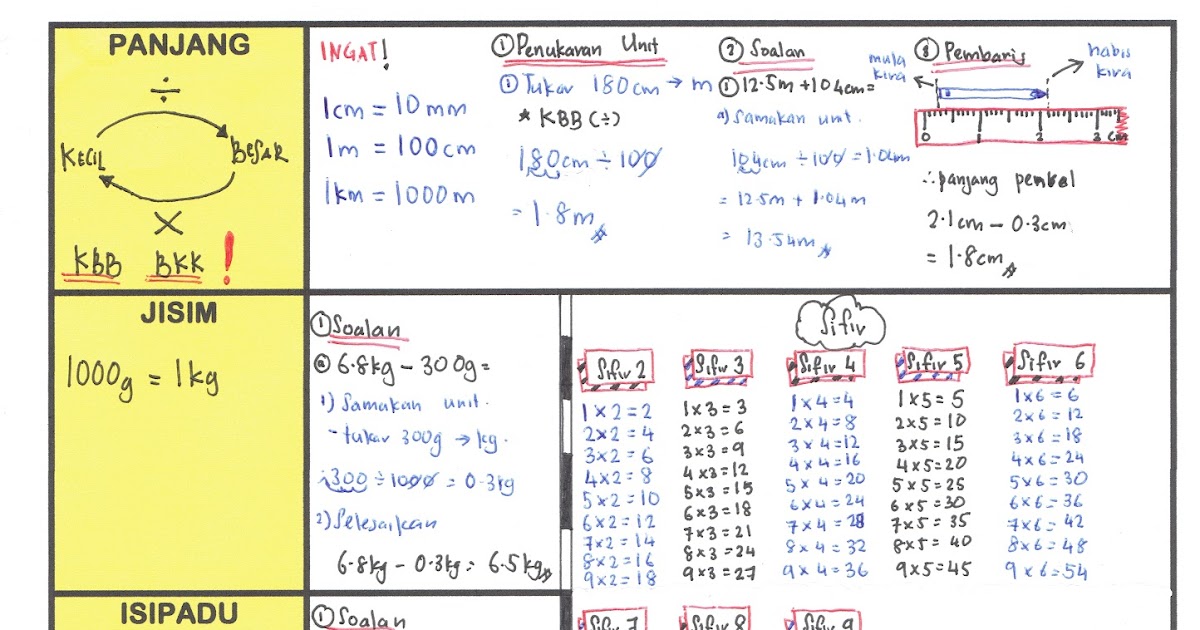 PANJANG
÷
KECIL
BESAR
×
KBB BKK !
INGAT!
1cm = 10 mm
1m = 100 cm
1km = 1000 m
① Penukaran Unit
① Tukar 180cm → m
* KBB (÷)
180cm ÷ 100
= 1.8m
② Soalan
① 12.5m + 104cm =
a) Samakan unit.
104cm ÷ 100 = 1.04m
= 12.5m + 1.04m
= 13.54m
③ Pembaris
mula kira
habis kira
0 1 2 3 cm
∴ panjang pensel
2.1cm – 0.3cm
= 1.8cm
JISIM
1000g = 1kg
① Soalan
ⓐ 6.8kg – 300g =
1) Samakan unit.
- tukar 300g → kg.
300 ÷ 1000 = 0.3kg
2) Selesaikan
6.8kg – 0.3kg = 6.5kg
Sifir
Sifir 2
1 × 2 = 2
2 × 2 = 4
3 × 2 = 6
4 × 2 = 8
5 × 2 = 10
6 × 2 = 12
7 × 2 = 14
8 × 2 = 16
9 × 2 = 18
Sifir 3
1 × 3 = 3
2 × 3 = 6
3 × 3 = 9
4 × 3 = 12
5 × 3 = 15
6 × 3 = 18
7 × 3 = 21
8 × 3 = 24
9 × 3 = 27
Sifir 4
1 × 4 = 4
2 × 4 = 8
3 × 4 = 12
4 × 4 = 16
5 × 4 = 20
6 × 4 = 24
7 × 4 = 28
8 × 4 = 32
9 × 4 = 36
Sifir 5
1 × 5 = 5
2 × 5 = 10
3 × 5 = 15
4 × 5 = 20
5 × 5 = 25
6 × 5 = 30
7 × 5 = 35
8 × 5 = 40
9 × 5 = 45
Sifir 6
1 × 6 = 6
2 × 6 = 12
3 × 6 = 18
4 × 6 = 24
5 × 6 = 30
6 × 6 = 36
7 × 6 = 42
8 × 6 = 48
9 × 6 = 54
ISIPADU
① Soalan
Sifir 7
Sifir 8
Sifir 9